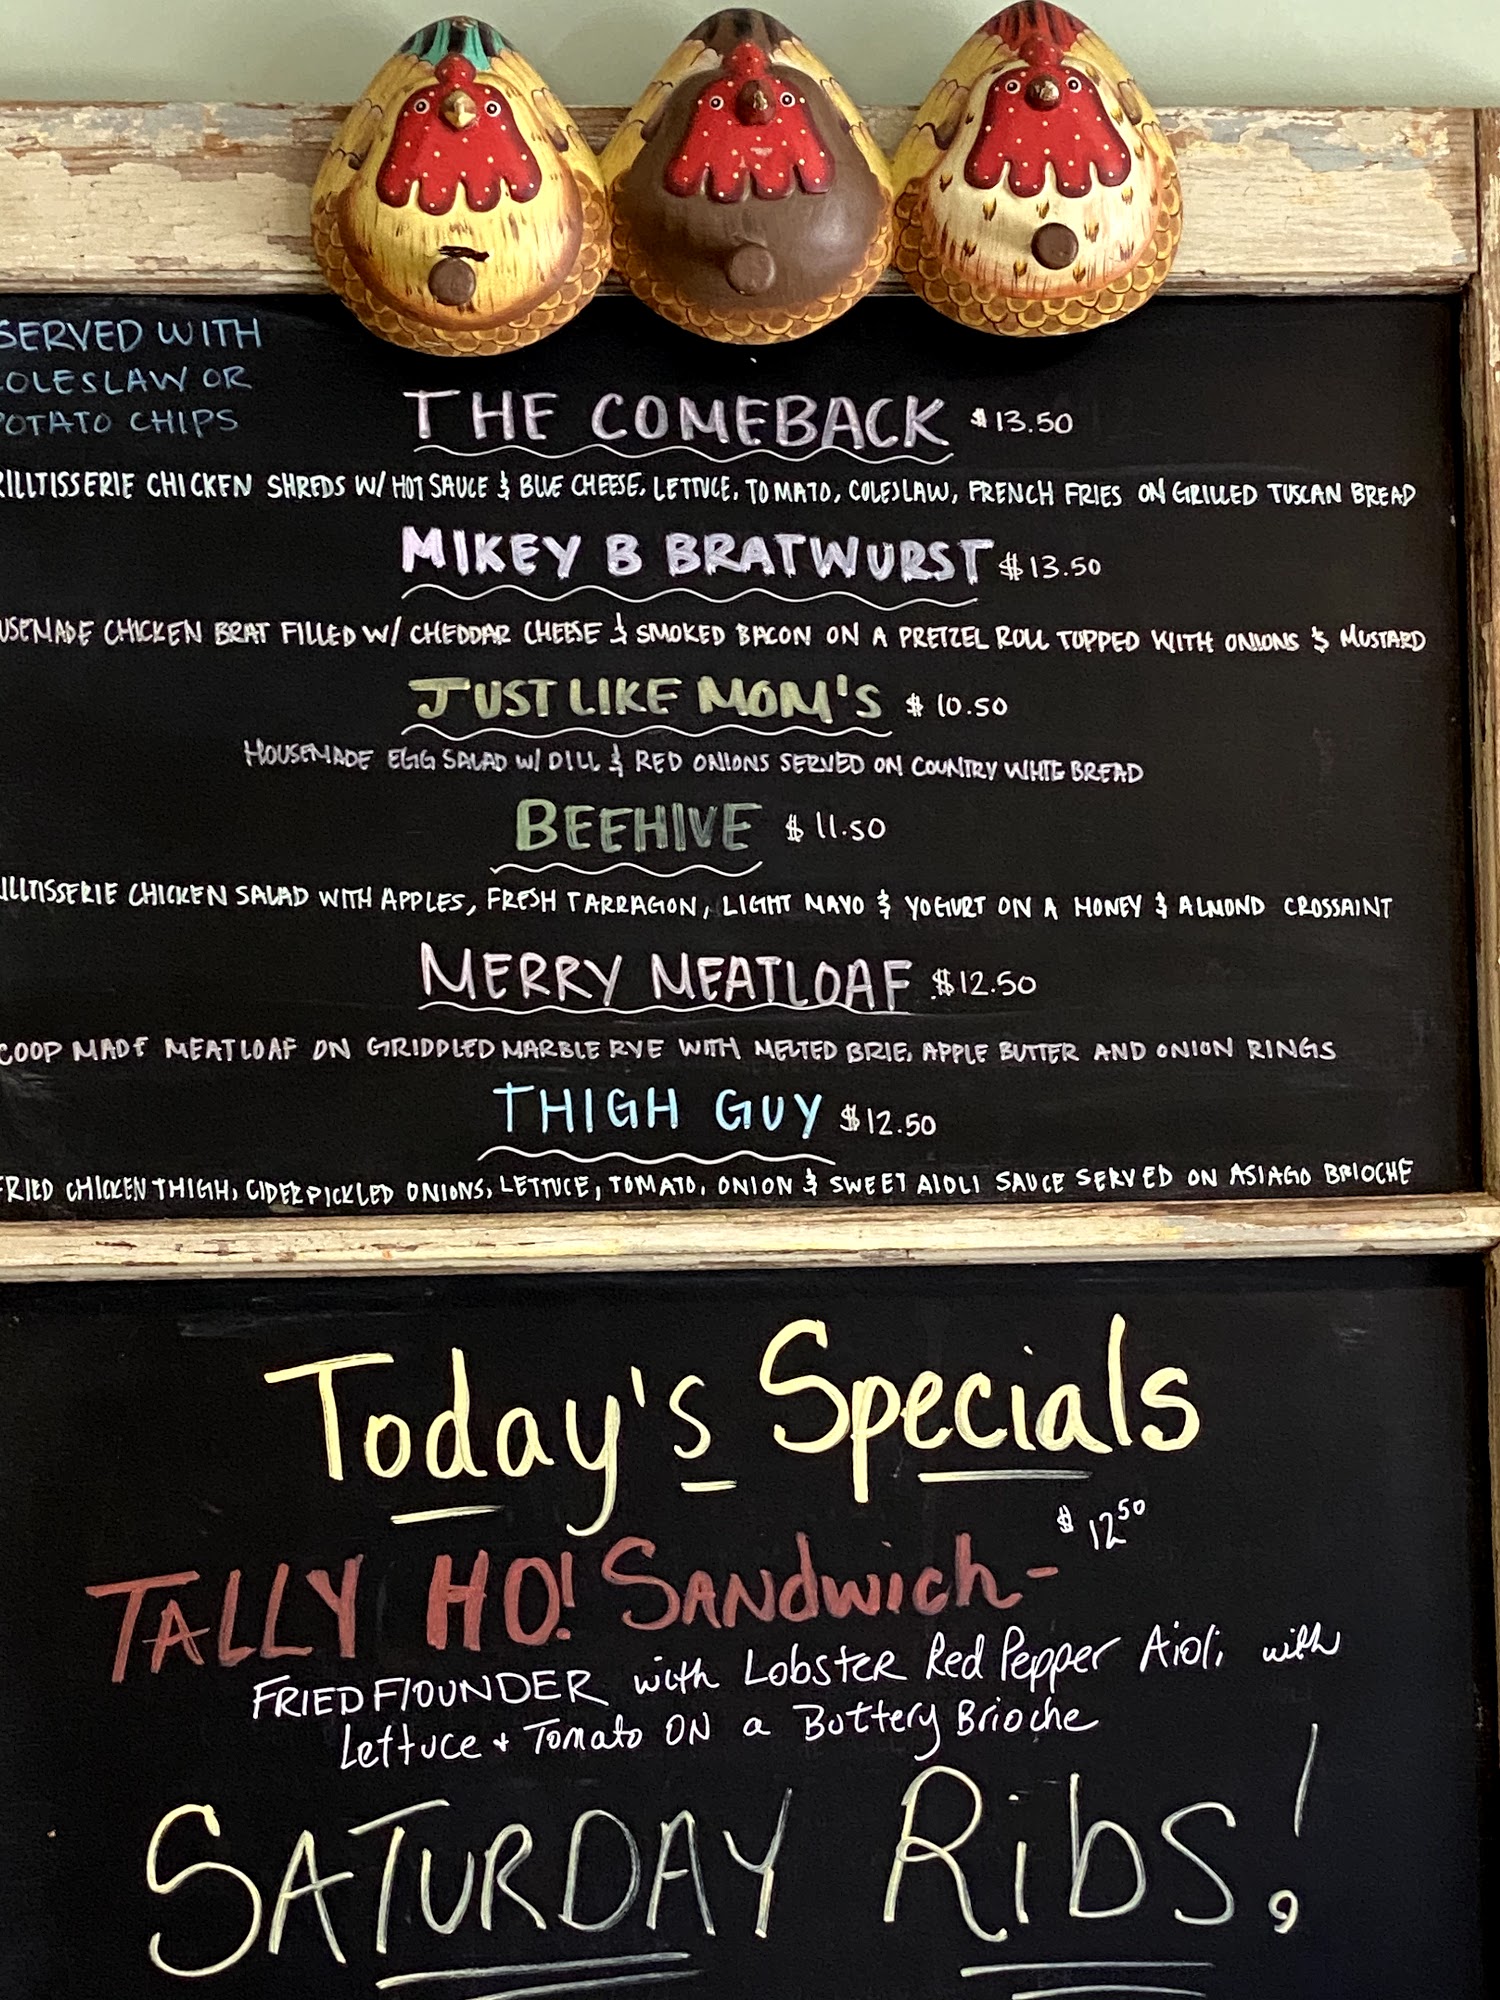 SERVED WITH
COLESLAW OR
POTATO CHIPS
THE COMEBACK $13.50
RILLTISSERIE CHICKEN SHREDS W/ HOT SAUCE & BLUE CHEESE, LETTUCE, TOMATO, COLESLAW, FRENCH FRIES ON GRILLED TUSCAN BREAD
MIKEY B BRATWURST $13.50
USEMADE CHICKEN BRAT FILLED W/ CHEDDAR CHEESE & SMOKED BACON ON A PRETZEL ROLL TOPPED WITH ONIONS & MUSTARD
JUST LIKE MOM'S $10.50
HOUSEMADE EGG SALAD W/ DILL & RED ONIONS SERVED ON COUNTRY WHITE BREAD
BEEHIVE $11.50
ILLTISSERIE CHICKEN SALAD WITH APPLES, FRESH TARRAGON, LIGHT MAYO & YOGURT ON A HONEY & ALMOND CROSSAINT
MERRY MEATLOAF $12.50
COOP MADE MEATLOAF ON GRIDDLED MARBLE RYE WITH MELTED BRIE, APPLE BUTTER AND ONION RINGS
THIGH GUY $12.50
FRIED CHICKEN THIGH, CIDER PICKLED ONIONS, LETTUCE, TOMATO, ONION & SWEET AIOLI SAUCE SERVED ON ASIAGO BRIOCHE
Today's Specials
TALLY HO! SANDwich- $12.50
FRIED FlOUNDER with LobsTER Red Pepper Aioli with
Lettuce + Tomato ON a Buttery Brioche
SATURDAY RibS!